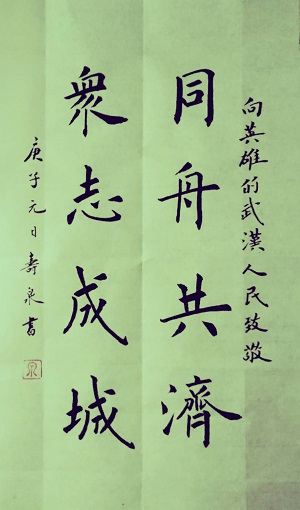 向英雄的武漢人民致敬
同舟共濟
衆志成城
庚子元日壽泉書